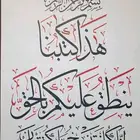 بسم الله الرحمن الرحيم
هذا كتبنا
ينطق عليكم بالحق